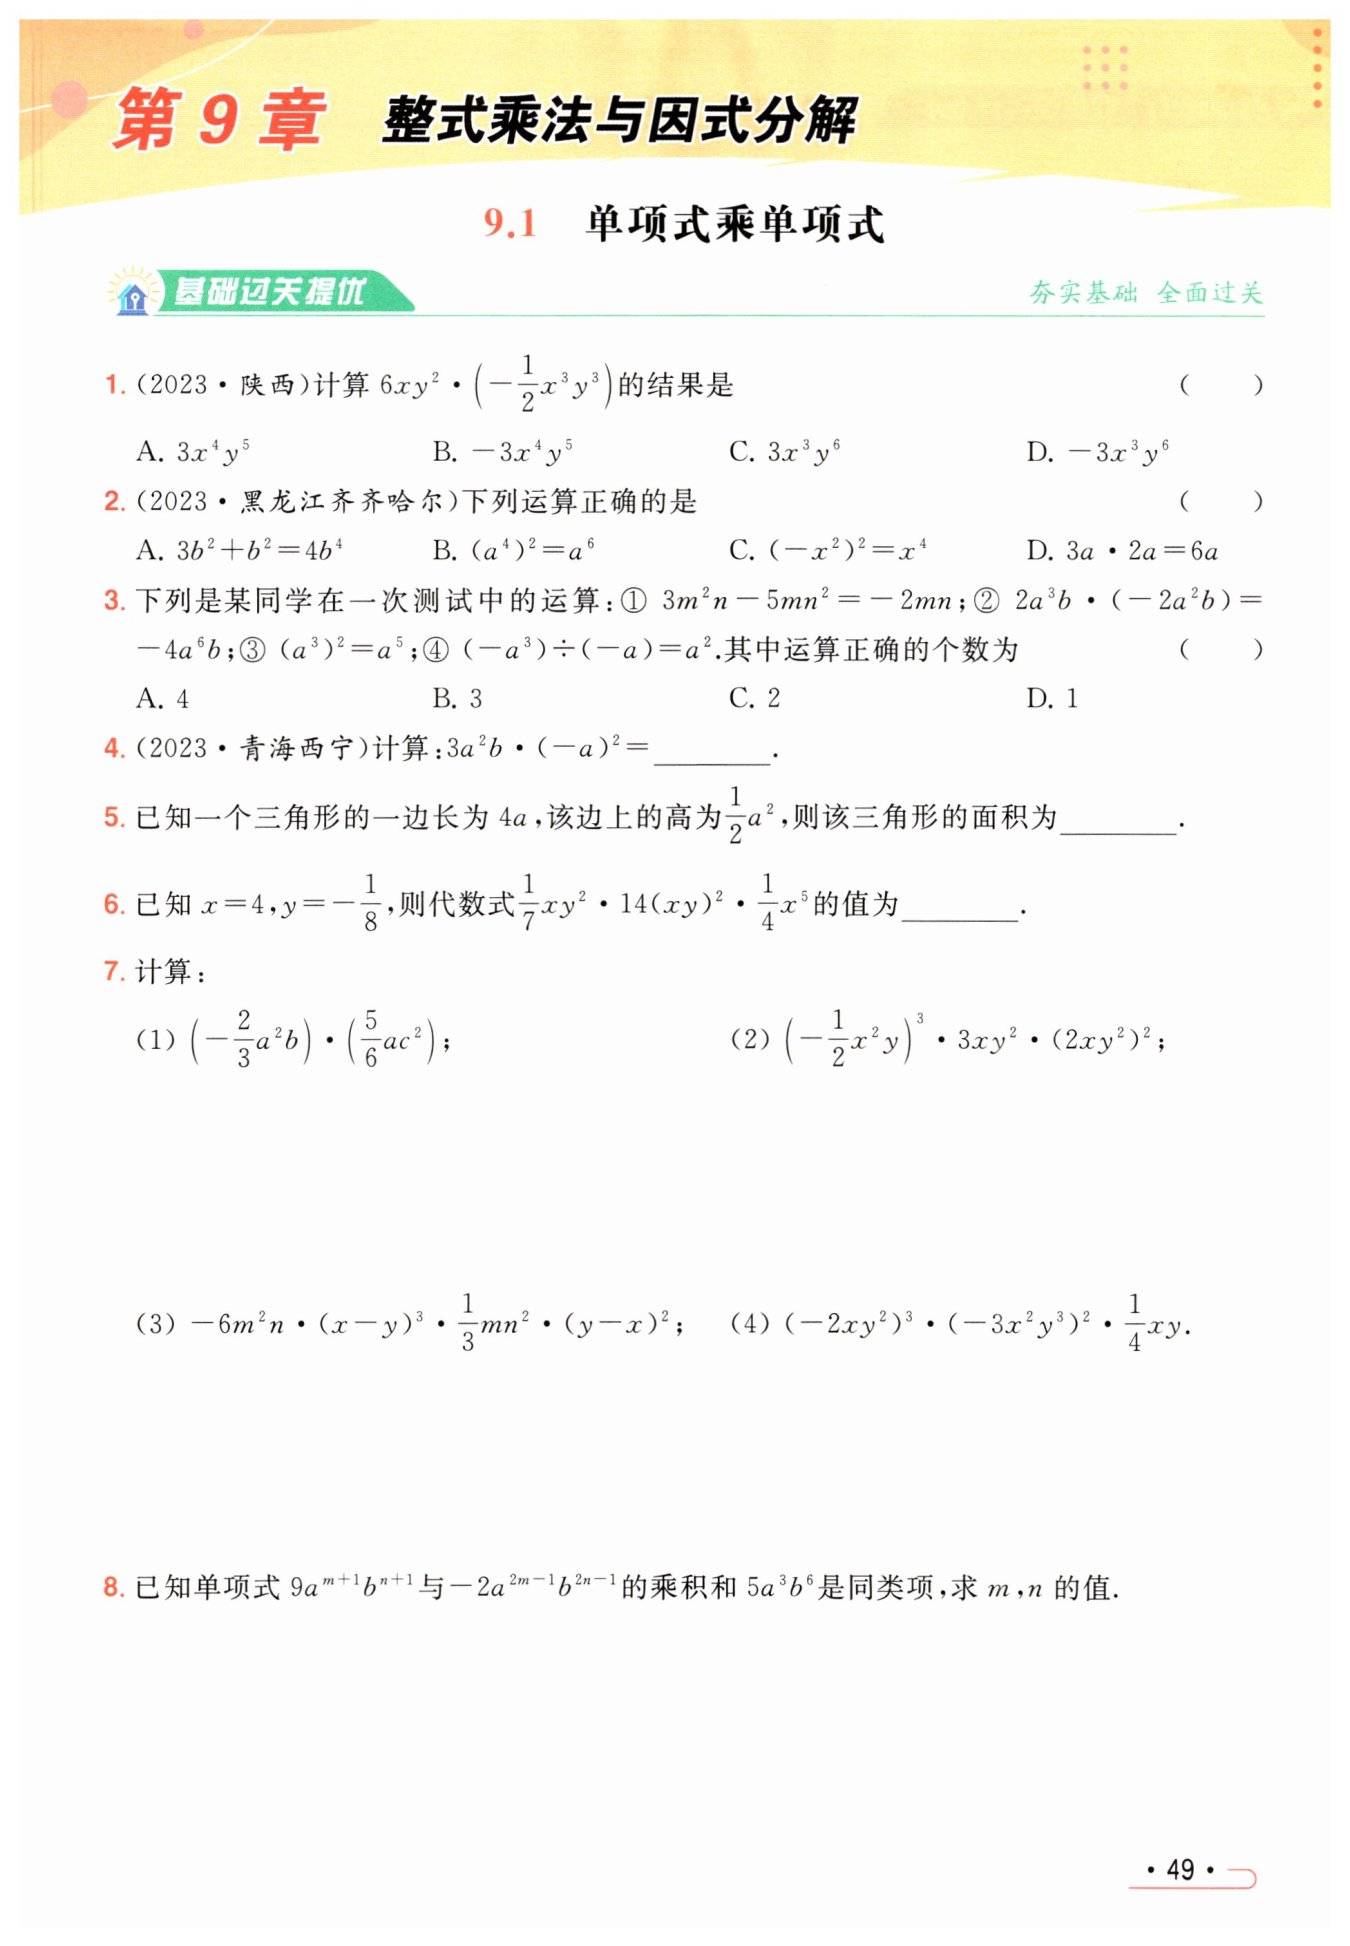 第9章 整式乘法与因式分解
9.1 单项式乘单项式
基础过关提优
夯实基础 全面过关
1. (2023·陕西)计算 6xy²·(-1/2x³y³)的结果是 ( )
A. 3x⁴y⁵ B. -3x⁴y⁵ C. 3x³y⁶ D. -3x³y⁶
2. (2023·黑龙江齐齐哈尔)下列运算正确的是 ( )
A. 3b²+b²=4b⁴ B. (a⁴)²=a⁶ C. (-x²)²=x⁴ D. 3a·2a=6a
3. 下列是某同学在一次测试中的运算:① 3m²n-5mn²=-2mn;② 2a³b·(-2a²b)=
-4a⁶b;③ (a³)²=a⁵;④ (-a³)÷(-a)=a².其中运算正确的个数为 ( )
A. 4 B. 3 C. 2 D. 1
4. (2023·青海西宁)计算:3a²b·(-a)²=________.
5. 已知一个三角形的一边长为 4a,该边上的高为1/2a²,则该三角形的面积为________.
6. 已知 x=4,y=-1/8,则代数式1/7xy²·14(xy)²·1/4x⁵的值为________.
7. 计算:
(1) (-2/3a²b)·(5/6ac²); (2) (-1/2x²y)³·3xy²·(2xy²)²;
(3) -6m²n·(x-y)³·1/3mn²·(y-x)²; (4) (-2xy²)³·(-3x²y³)²·1/4xy.
8. 已知单项式 9aᵐ⁺¹bⁿ⁺¹与-2a²ᵐ⁻¹b²ⁿ⁻¹的乘积和 5a³b⁶是同类项,求 m,n 的值.
·49·